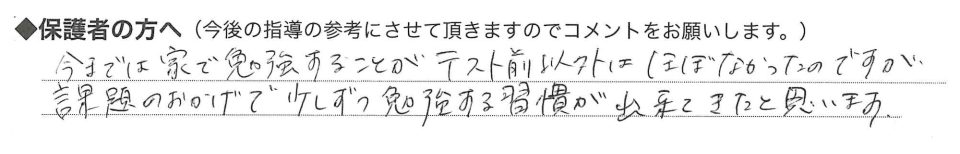 ◆保護者の方へ（今後の指導の参考にさせて頂きますのでコメントをお願いします。）
今までは家で勉強することがテスト前以外はほぼなかったのですが、
課題のおかげで少しずつ勉強する習慣が出来てきたと思います。